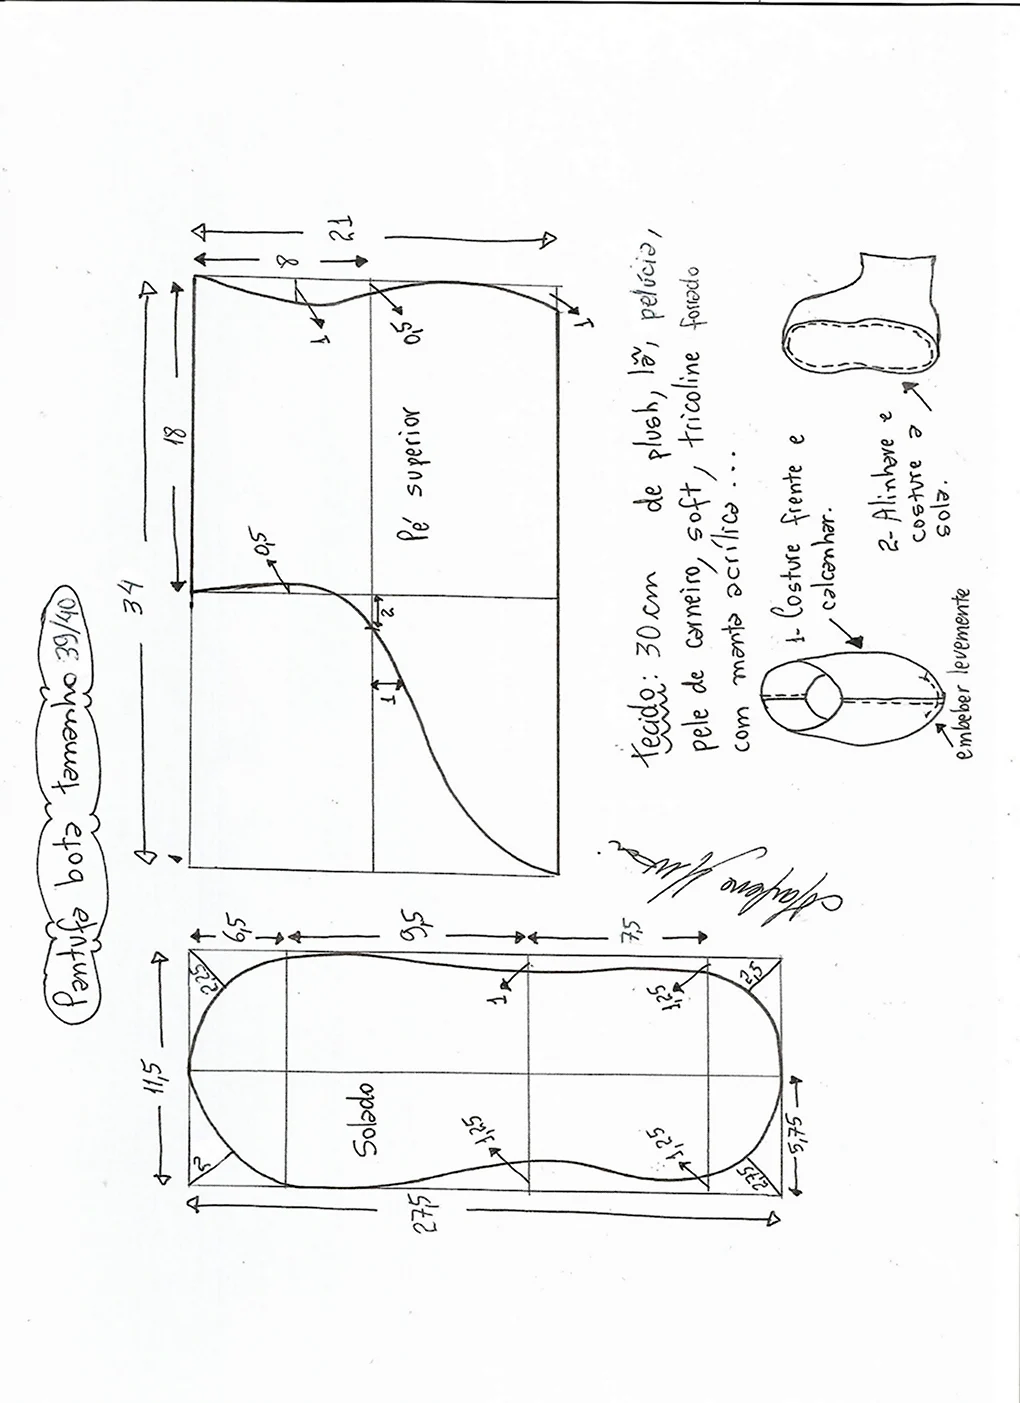 Pantufa bota tamanho 39/40
34
18
21
8
1
0,5
1
0,5
2
1
Pé superior
11,5
27,5
6,5
9,5
7,5
2,25
2,5
1
1,25
Solado
1,25
1,25
2,75
5,75
Tecido: 30cm de plush, lã, pelúcia,
pele de carneiro, soft, tricoline forrado
com manta acrílica...
1- Costure frente e
calcanhar.
embeber levemente
2- Alinhave e
costure a
sola.